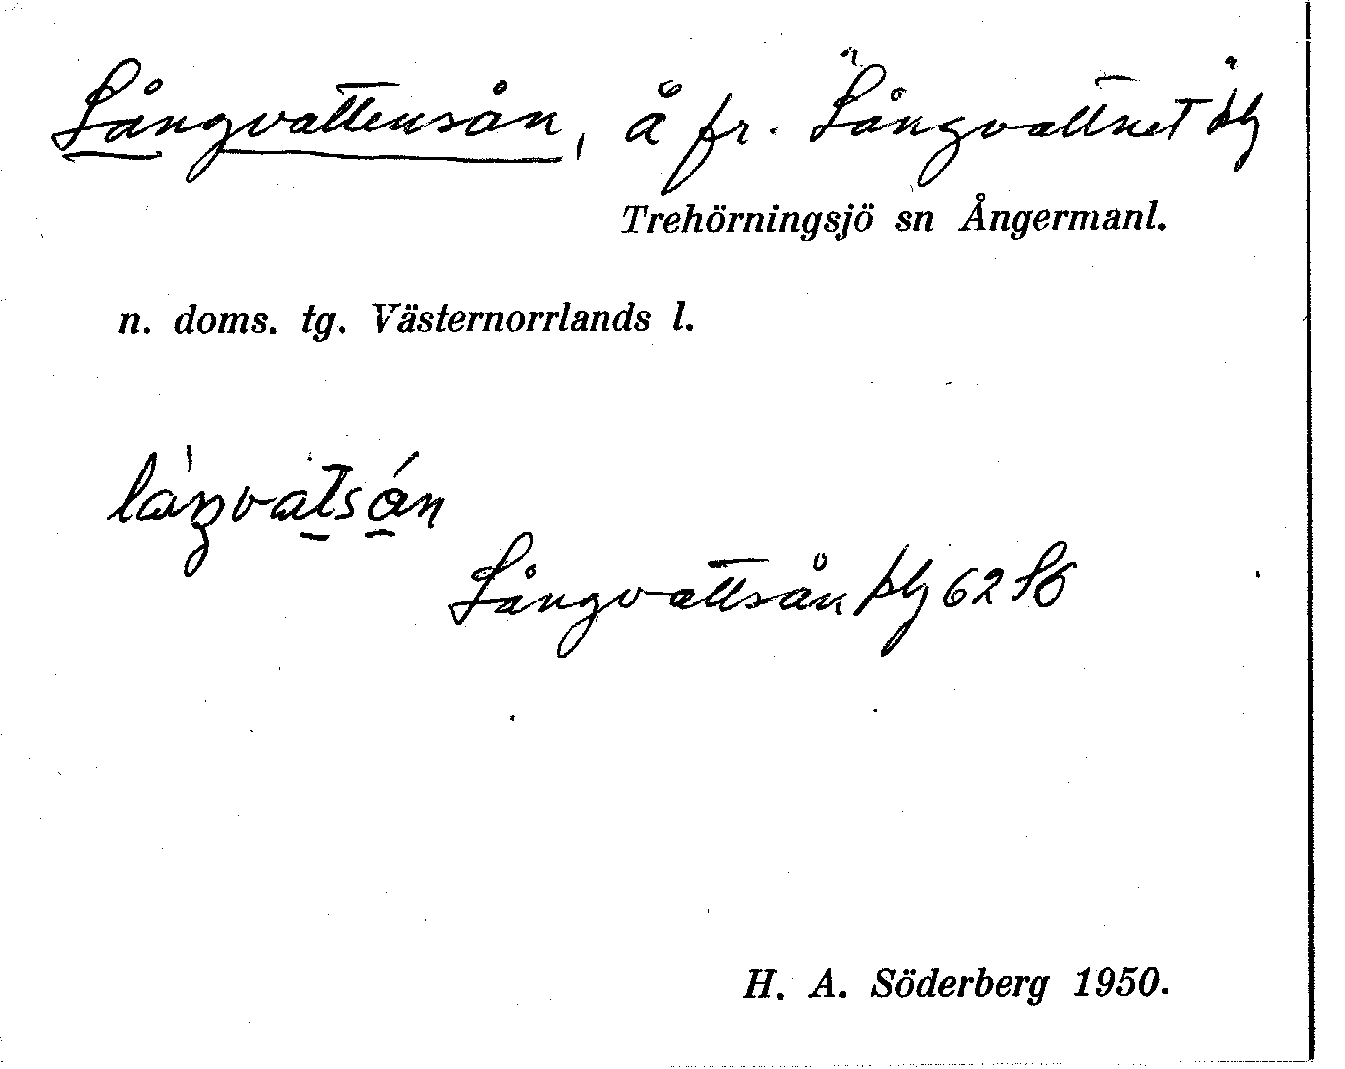 Långvattensån, å fr. "Långvattnet"
Trehörningsjö sn Ångermanl.
n. doms. tg. Västernorrlands l.
Långvattsån 62
H. A. Söderberg 1950.